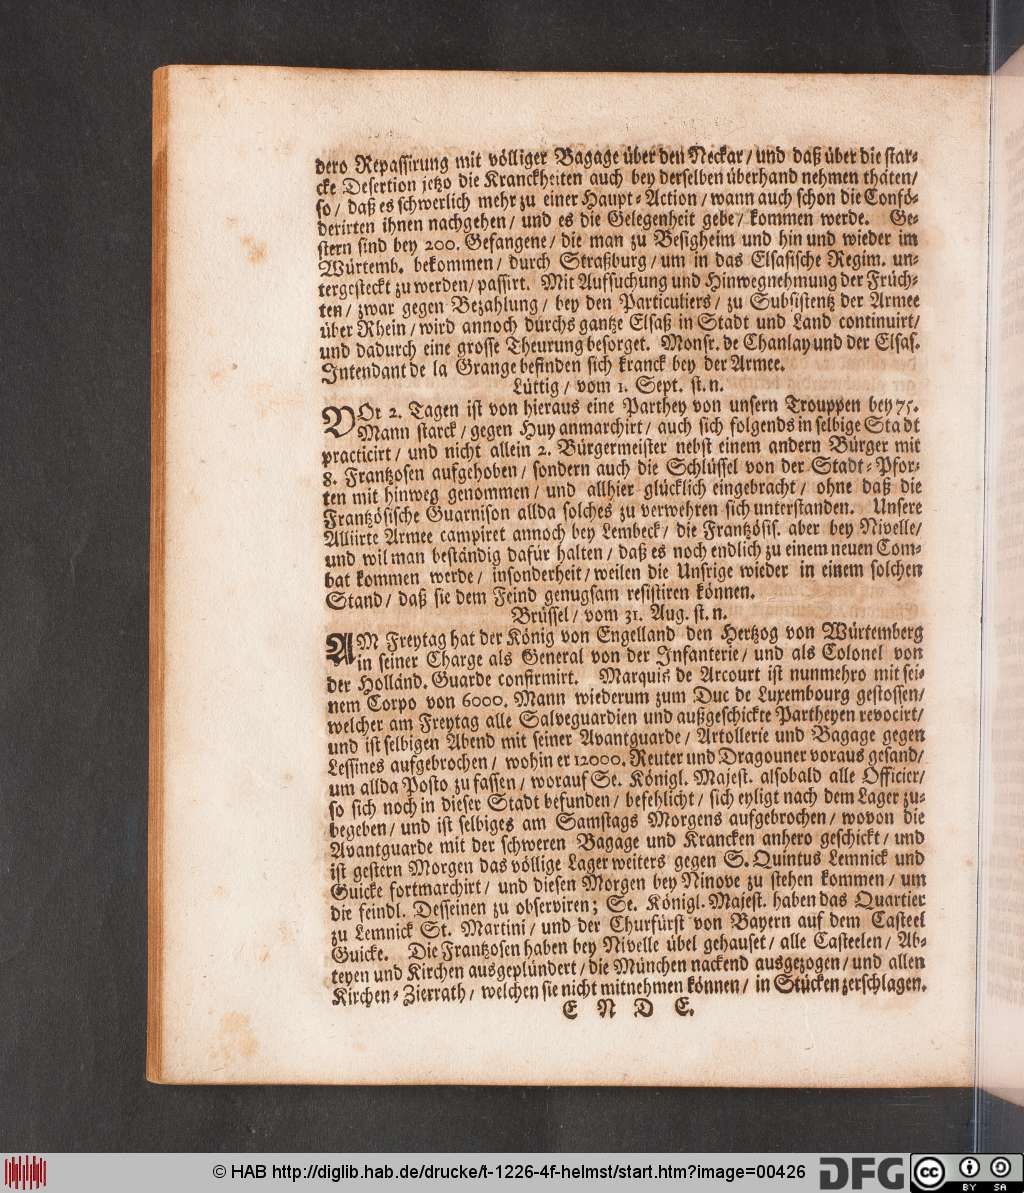 dero Repassirung mit völliger Bagage über den Neckar / und daß über die star-
cke Desertion jetzo die Kranckheiten auch bey derselben überhand nehmen thäten /
so / daß es schwerlich mehr zu einer Haupt-Action / wann auch schon die Confö-
derirten ihnen nachgehen / und es die Gelegenheit gebe / kommen werde. Ge-
stern sind bey 200. Gefangene / die man zu Besigheim und hin und wieder im
Würtemb. bekommen / durch Straßburg / um in das Elsasische Regim. un-
tergesteckt zu werden / passirt. Mit Aufsuchung und Hinwegnehmung der Früch-
ten / zwar gegen Bezahlung / bey den Particuliers / zu Subsistentz der Armee
über Rhein / wird annoch durchs gantze Elsaß in Stadt und Land continuirt /
und dadurch eine grosse Theurung besorget. Monsr. de Chanlay und der Elsas.
Intendant de la Grange befinden sich kranck bey der Armee.
Lüttig / vom 1. Sept. st. n.
VOr 2. Tagen ist von hieraus eine Parthey von unsern Trouppen bey 75.
Mann starck / gegen Huy anmarchirt / auch sich folgends in selbige Stadt
practicirt / und nicht allein 2. Bürgermeister nebst einem andern Bürger mit
8. Frantzosen aufgehoben / sondern auch die Schlüssel von der Stadt-Pfor-
ten mit hinweg genommen / und allhier glücklich eingebracht / ohne daß die
Frantzösische Guarnison allda solches zu verwehren sich unterstanden. Unsere
Alliirte Armee campiret annoch bey Lembeck / die Frantzösis. aber bey Nivelle /
und wil man beständig dafür halten / daß es noch endlich zu einem neuen Com-
bat kommen werde / insonderheit / weilen die Unsrige wieder in einem solchen
Stand / daß sie dem Feind genugsam resistiren können.
Brüssel / vom 31. Aug. st. n.
AM Freytag hat der König von Engelland den Hertzog von Würtemberg
in seiner Charge als General von der Infanterie / und als Colonel von
der Holländ. Guarde confirmirt. Marquis de Arcourt ist nunmehro mit sei-
nem Corpo von 6000. Mann wiederum zum Duc de Luxembourg gestossen /
welcher am Freytag alle Salveguardien und außgeschickte Partheyen revocirt /
und ist selbigen Abend mit seiner Avantguarde / Artollerie und Bagage gegen
Lessines aufgebrochen / wohin er 12000. Reuter und Dragouner voraus gesand /
um allda Posto zu fassen / worauf Se. Königl. Majest. alsobald alle Officier /
so sich noch in dieser Stadt befunden / befehlicht / sich eyligt nach dem Lager zu-
begeben / und ist selbiges am Samstags Morgens aufgebrochen / wovon die
Avantguarde mit der schweren Bagage und Krancken anhero geschickt / und
ist gestern Morgen das völlige Lager weiters gegen S. Quintus Lemnick und
Guicke fortmarchirt / und diesen Morgen bey Ninove zu stehen kommen / um
die feindl. Desseinen zu observiren; Se. Königl. Majest. haben das Quartier
zu Lemnick St. Martini / und der Churfürst von Bayern auf dem Casteel
Guicke. Die Frantzosen haben bey Nivelle übel gehauset / alle Casteelen / Ab-
teyen und Kirchen ausgeplündert / die München nackend ausgezogen / und allen
Kirchen-Zierrath / welchen sie nicht mitnehmen können / in Stücken zerschlagen.
E N D E.
© HAB http://diglib.hab.de/drucke/t-1226-4f-helmst/start.htm?image=00426
DFG
cc BY SA